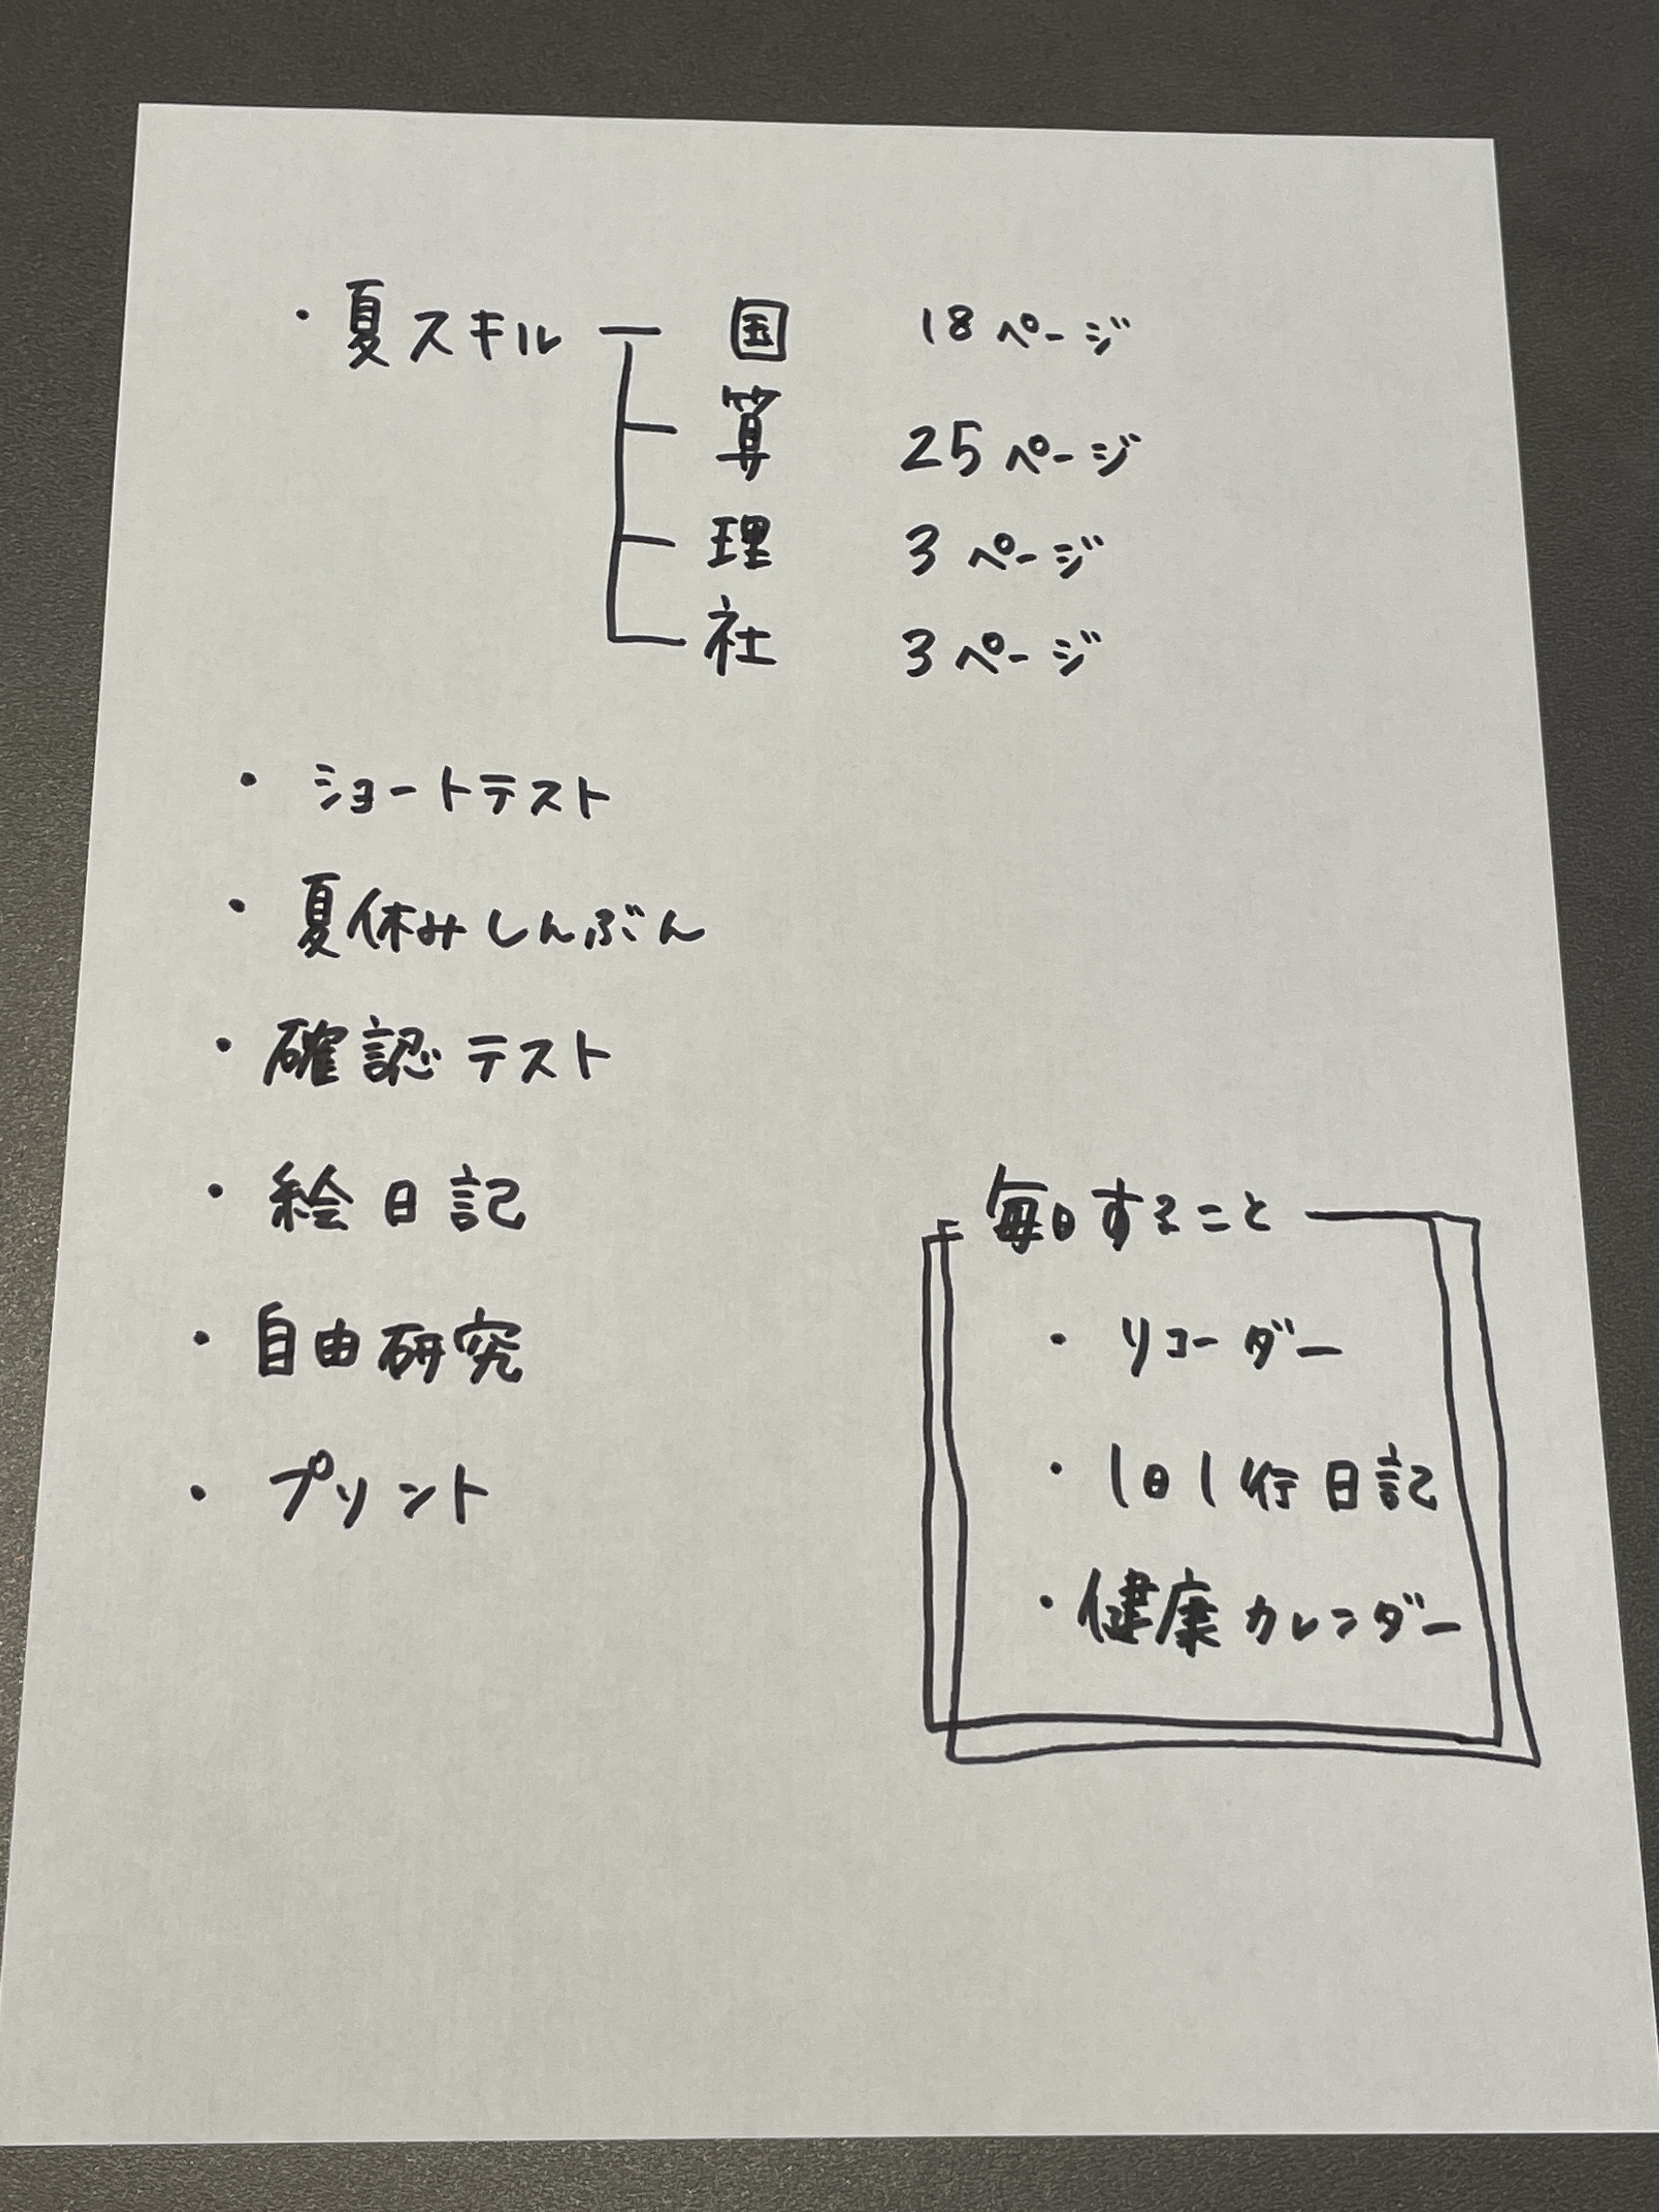 ・夏スキル 国 18ページ
算 25ページ
理 3ページ
社 3ページ
・ショートテスト
・夏休みしんぶん
・確認テスト
・絵日記
・自由研究
・プリント
毎日すること
・リコーダー
・1日1行日記
・健康カレンダー